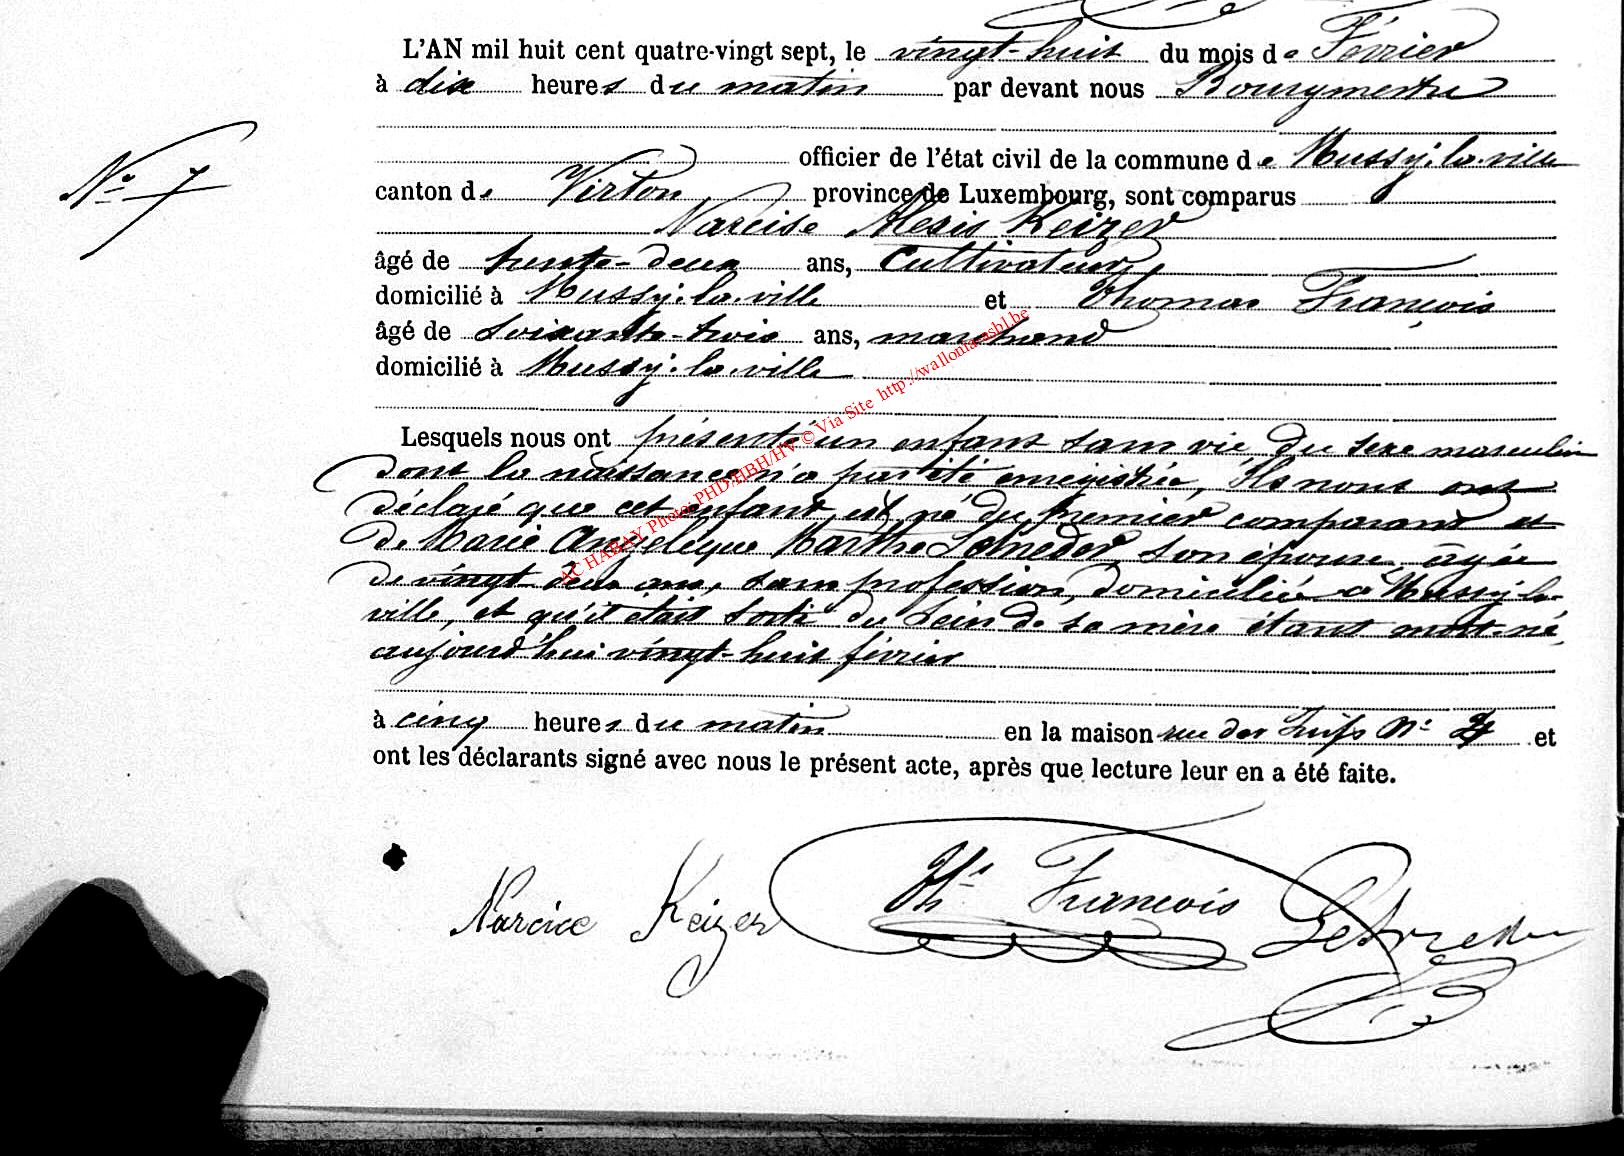 L'AN mil huit cent quatre-vingt sept, le vingt-huit du mois de Février
à dix heures du matin par devant nous Bourgmestre
officier de l'état civil de la commune de Mussy-la-ville
N° 7
canton de Virton province de Luxembourg, sont comparus
Narcise Alexis Keizer
âgé de trente-deux ans, Cultivateur,
domicilié à Mussy-la-ville et Thomas François
âgé de soixante-trois ans, marchand
domicilié à Mussy-la-ville
Lesquels nous ont présenté un enfant sans vie, du sexe masculin
dont la naissance n'a pas été enregistrée, Ils nous ont
déclaré que cet enfant est né du premier comparant et
de Marie Angelique Marthe Schneder, son épouse, âgée
de vingt deux ans, sans profession, domiciliée à Mussy-la-
ville, et qu'il était sorti du sein de sa mère étant mort-né,
aujourd'hui vingt-huit février
à cinq heures du matin en la maison rue des Juifs N° 4 et
ont les déclarants signé avec nous le présent acte, après que lecture leur en a été faite.
Narcice Keizer Th. François
AC HABAY Photo PHD/HBH/HV © Via Site http://wallonia-asbl.be